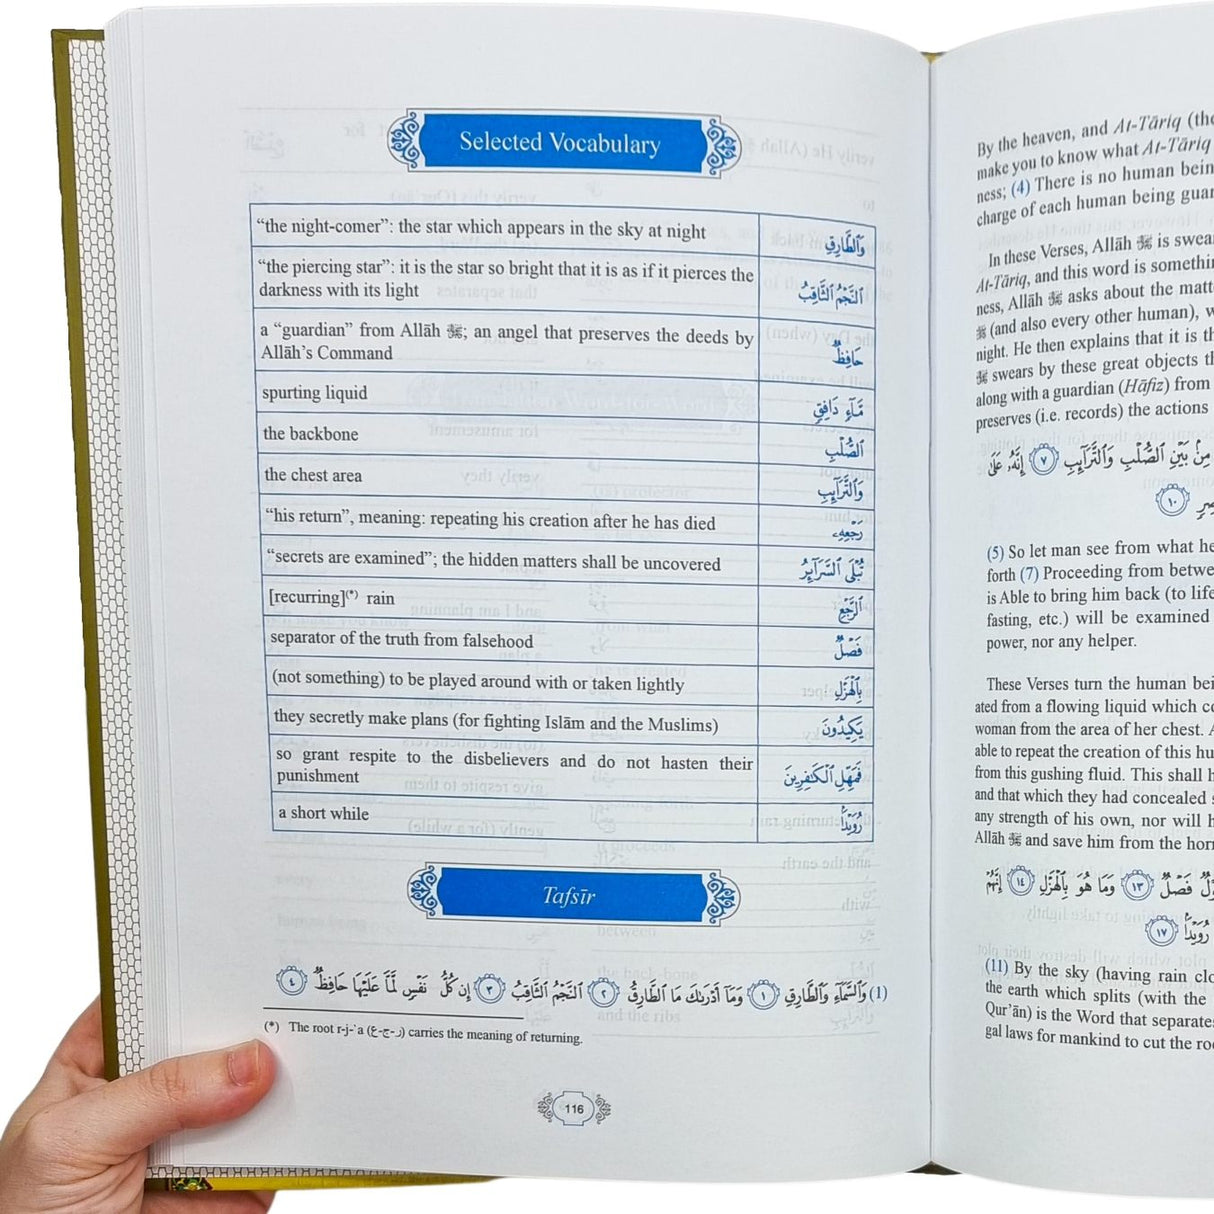 Selected Vocabulary
“the night-comer”: the star which appears in the sky at night وَٱلطَّارِقِ
“the piercing star”: it is the star so bright that it is as if it pierces the
darkness with its light ٱلنَّجْمُ ٱلثَّاقِبُ
a “guardian” from Allāh ﷻ; an angel that preserves the deeds by
Allāh’s Command حَافِظٌ
spurting liquid مَّآءٍ دَافِقٍ
the backbone ٱلصُّلْبِ
the chest area وَٱلتَّرَآئِبِ
“his return”, meaning: repeating his creation after he has died رَجْعِهِۦ
“secrets are examined”; the hidden matters shall be uncovered تُبْلَى ٱلسَّرَآئِرُ
[recurring](*) rain ٱلرَّجْعِ
separator of the truth from falsehood فَصْلٌ
(not something) to be played around with or taken lightly بِٱلْهَزْلِ
they secretly make plans (for fighting Islām and the Muslims) يَكِيدُونَ
so grant respite to the disbelievers and do not hasten their
punishment فَمَهِّلِ ٱلْكَٰفِرِينَ
a short while رُوَيْدًۢا
Tafsīr
(1) وَٱلسَّمَآءِ وَٱلطَّارِقِ ١ وَمَآ أَدْرَىٰكَ مَا ٱلطَّارِقُ ٢ ٱلنَّجْمُ ٱلثَّاقِبُ ٣ إِن كُلُّ نَفْسٍ لَّمَّا عَلَيْهَا حَافِظٌ ٤
(*) The root r-j-`a (ر-ج-ع) carries the meaning of returning.
116
By the heaven, and At-Tāriq (the
make you to know what At-Tāriq
ness; (4) There is no human bein
charge of each human being guar
In these Verses, Allāh ﷻ is swear
At-Tāriq, and this word is somethin
ness, Allāh ﷻ asks about the matt
ﷺ (and also every other human), w
night. He then explains that it is th
ﷻ swears by these great objects th
along with a guardian (Hāfiz) from
preserves (i.e. records) the actions
مِنۢ بَيْنِ ٱلصُّلْبِ وَٱلتَّرَآئِبِ ٧ إِنَّهُۥ عَلَىٰ
١٠
(5) So let man see from what he
forth (7) Proceeding from betwe
is Able to bring him back (to life
fasting, etc.) will be examined
power, nor any helper.
These Verses turn the human bei
ated from a flowing liquid which co
woman from the area of her chest. A
able to repeat the creation of this hu
from this gushing fluid. This shall h
and that which they had concealed
any strength of his own, nor will h
Allāh ﷻ and save him from the horr
فَصْلٌ ١٣ وَمَا هُوَ بِٱلْهَزْلِ ١٤ إِنَّهُمْ
رُوَيْدًۢا ١٧
(11) By the sky (having rain clo
the earth which splits (with the
Qur’ān) is the Word that separate
gal laws for mankind to cut the ro